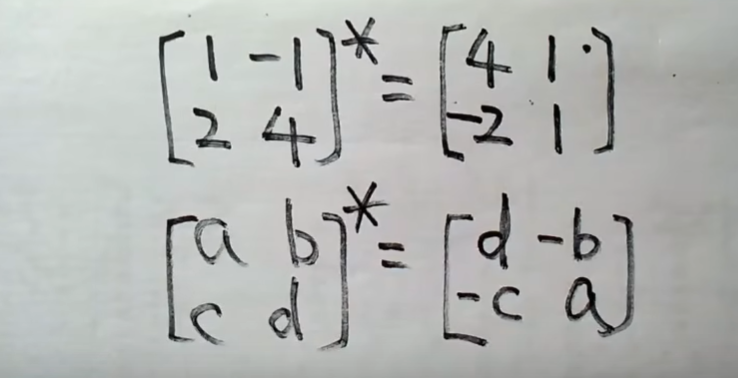 [1 -1
2 4]* = [4 1
-2 1]
[a b
c d]* = [d -b
-c a]